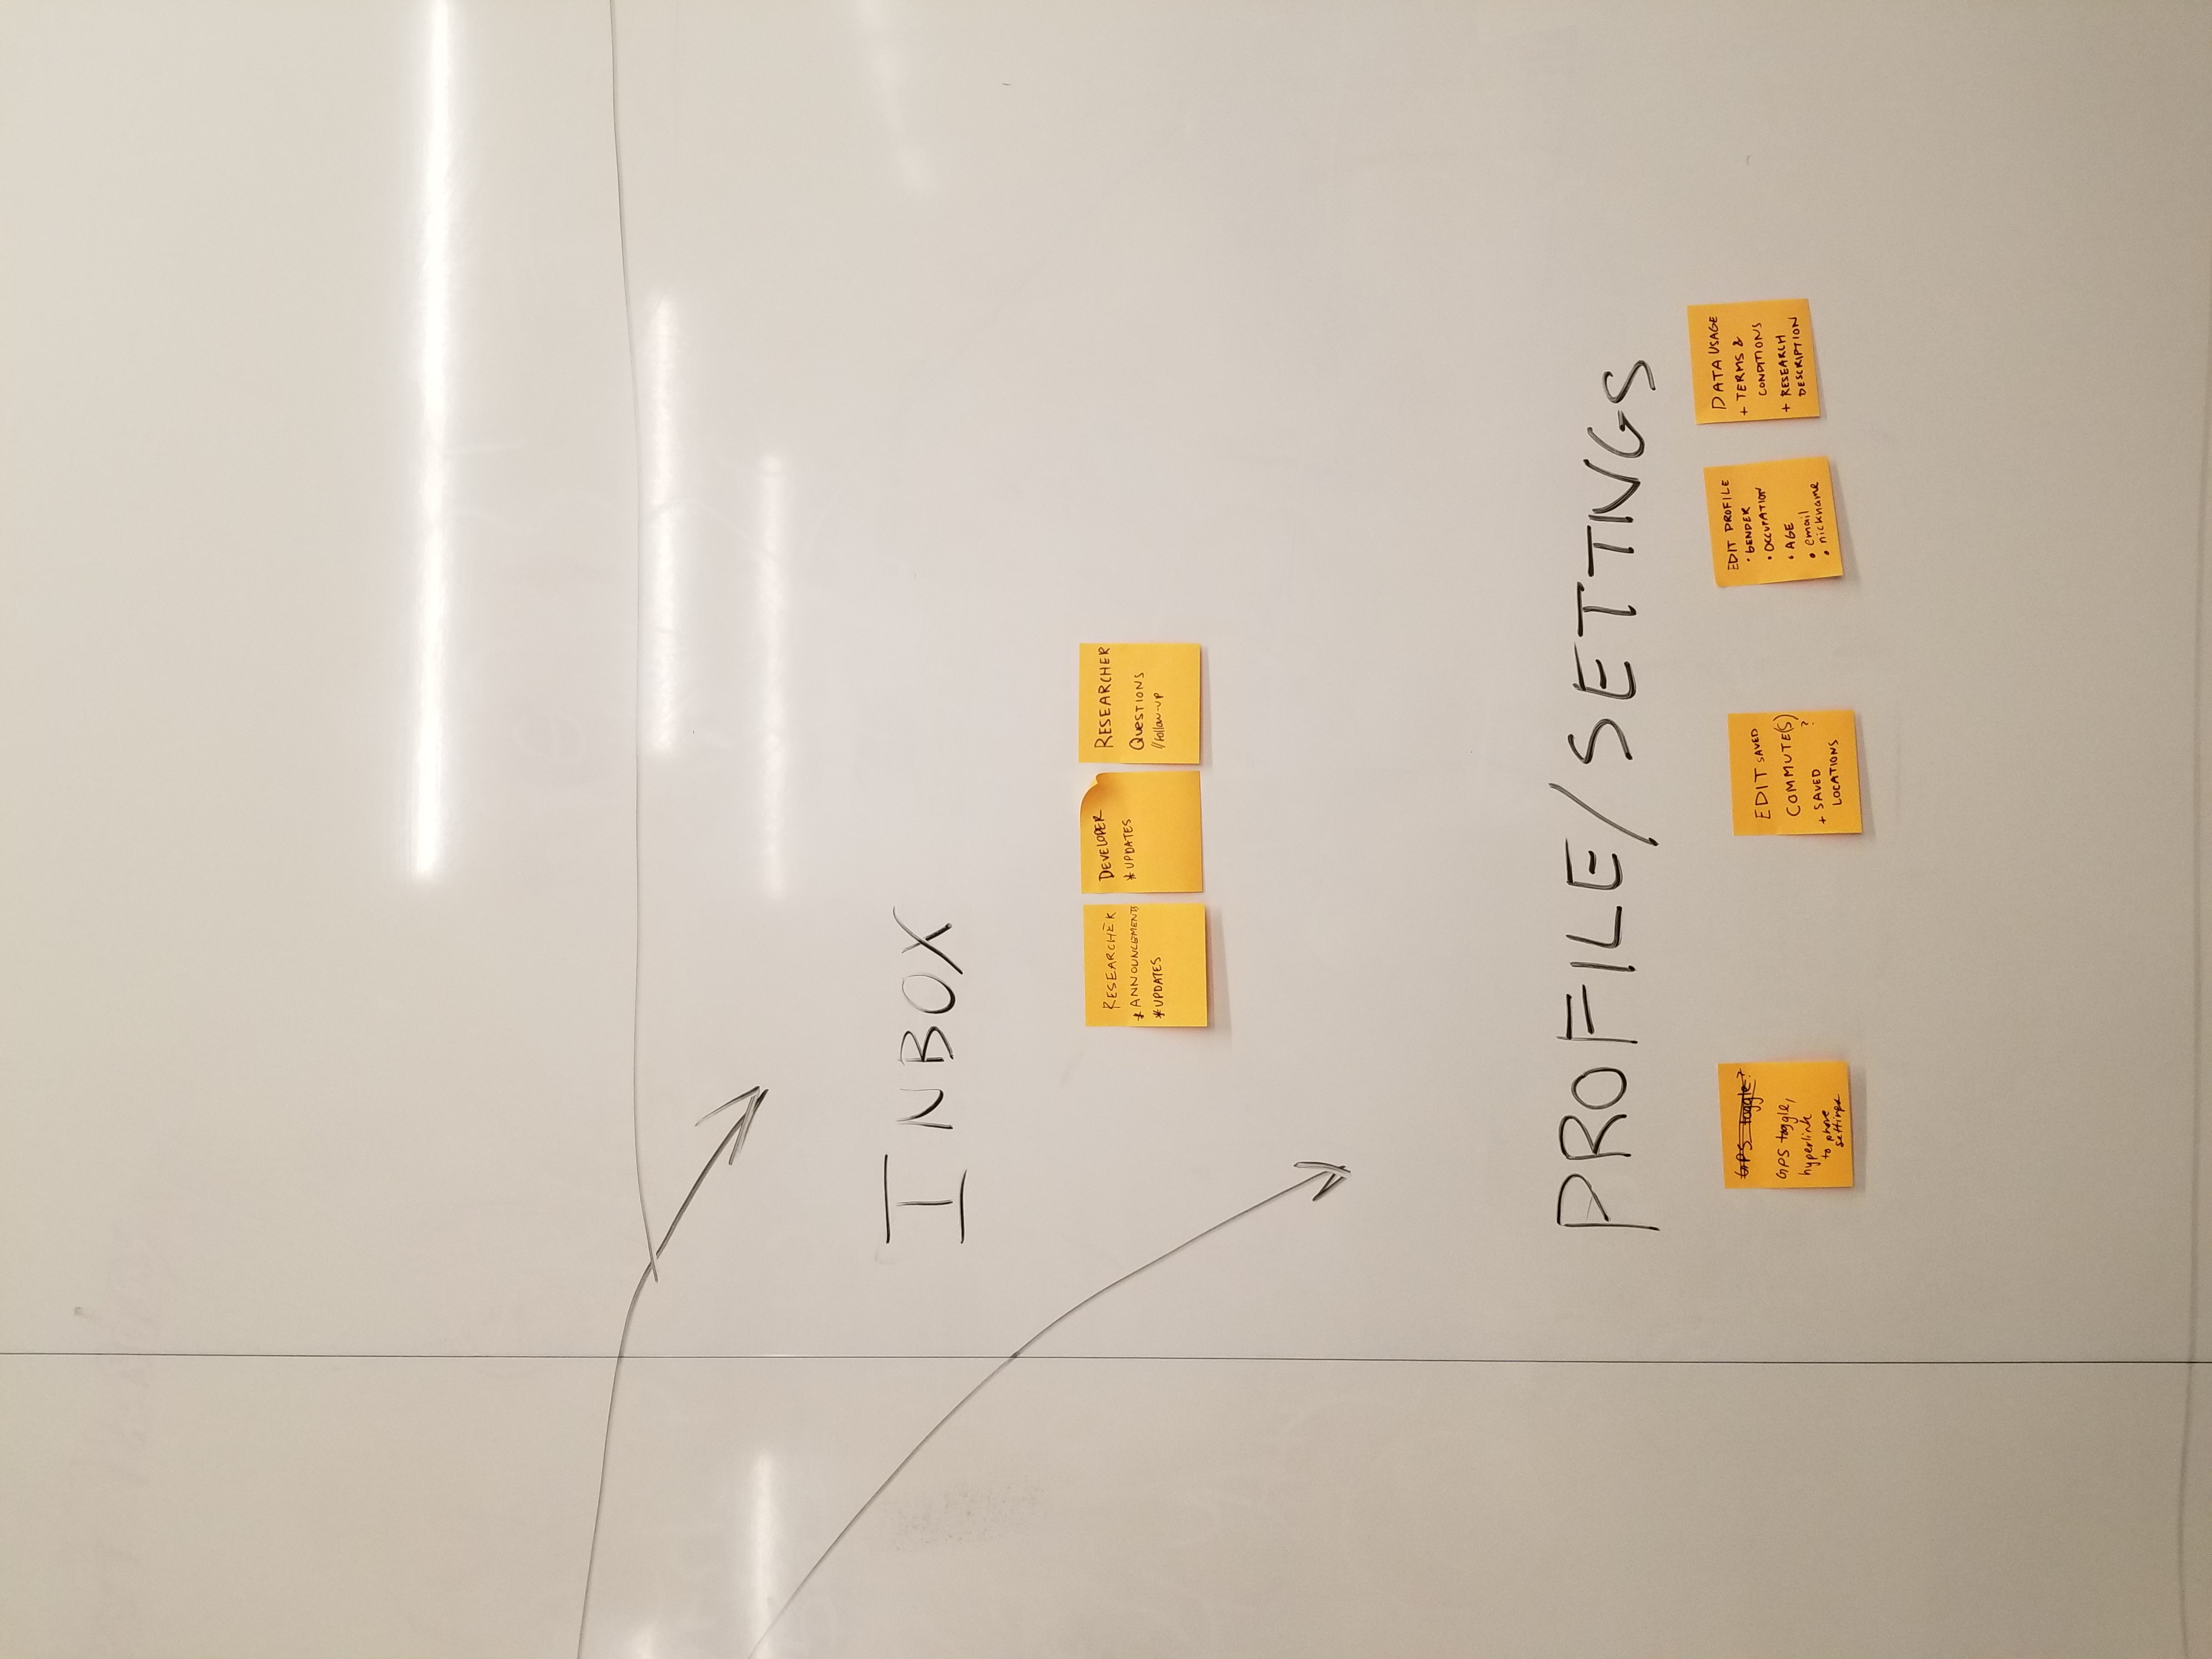 INBOX
RESEARCHER
* ANNOUNCEMENTS
* UPDATES
DEVELOPER
* UPDATES
RESEARCHER
QUESTIONS
// follow-up
PROFILE/SETTNGS
GPS toggle?
GPS toggle,
hyperlink
to phone
settings
EDIT SAVED
COMMUTE(S)
?
+ SAVED
LOCATIONS
EDIT PROFILE
• GENDER
• OCCUPATION
• AGE
• email
• nickname
DATA USAGE
+ TERMS &
CONDITIONS
+ RESEARCH
DESCRIPTION